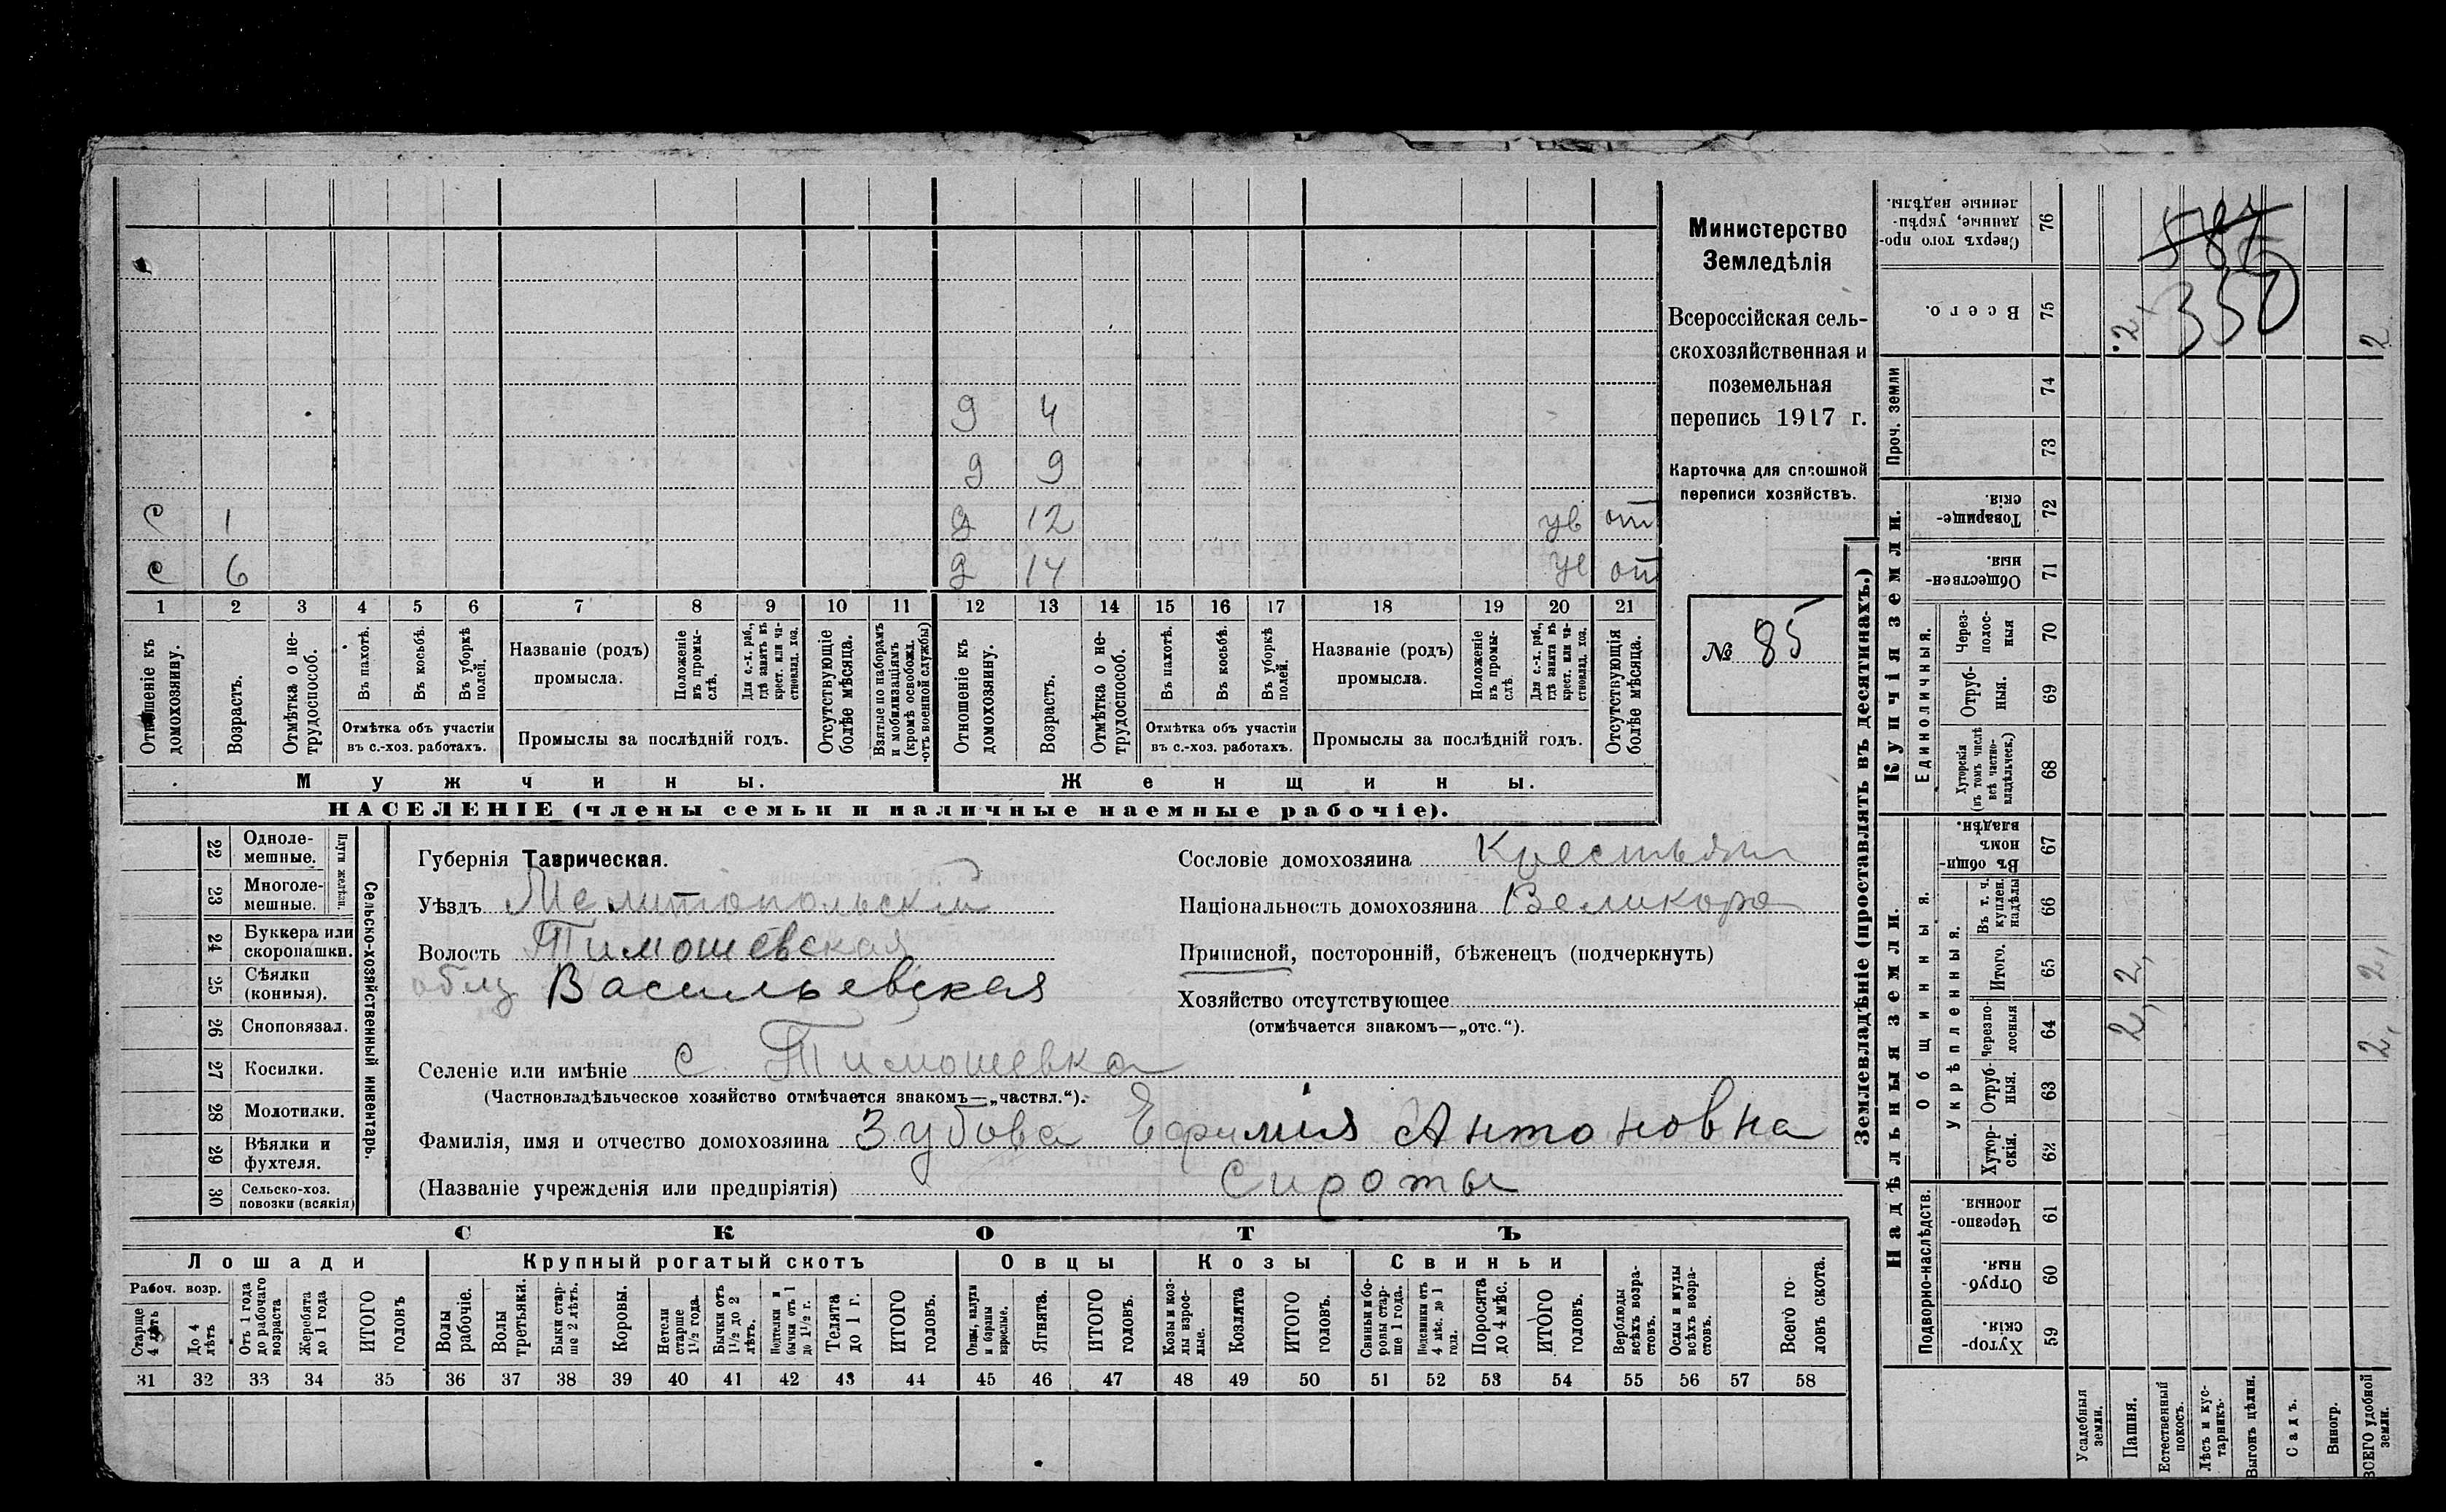 с 1
с 6
д 4
д 9
д 12 ув от
д 14 ув от
1 2 3 4 5 6 7 8 9 10 11 12 13 14 15 16 17 18 19 20 21
Отношеніе къ домохозяину.
Возрастъ.
Отмѣтка о нетрудоспособ.
Въ пахотѣ.
Въ косьбѣ.
Въ уборкѣ полей.
Отмѣтка объ участіи
въ с.-хоз. работахъ.
Названіе (родъ)
промысла.
Положеніе въ промыслѣ.
Для с.-х. раб., гдѣ занятъ въ крест. или частновлад. хоз.
Промыслы за послѣдній годъ.
Отсутствующіе болѣе мѣсяца.
Взятые по наборамъ и мобилизаціямъ (кромѣ освобожд. отъ военной службы)
Отношеніе къ домохозяину.
Возрастъ.
Отмѣтка о нетрудоспособ.
Въ пахотѣ.
Въ косьбѣ.
Въ уборкѣ полей.
Отмѣтка объ участіи
въ с.-хоз. работахъ.
Названіе (родъ)
промысла.
Положеніе въ промыслѣ.
Для с.-х. раб., гдѣ занята въ крест. или частновлад. хоз.
Промыслы за послѣдній годъ.
Отсутствующія болѣе мѣсяца.
Мужчины.
Женщины.
НАСЕЛЕНІЕ (члены семьи и наличные наемные рабочіе).
Министерство
Земледѣлія
Всероссійская сель-
скохозяйственная и
поземельная
перепись 1917 г.
Карточка для сплошной
переписи хозяйствъ.
№ 85
22 Одноле-
мешные.
23 Многоле-
мешные.
Плуги желѣзн.
24 Буккера или
скоропашки.
25 Сѣялки
(конныя).
26 Сноповязал.
27 Косилки.
28 Молотилки.
29 Вѣялки и
фухтеля.
30 Сельско-хоз.
повозки (всякія)
Сельско-хозяйственный инвентарь.
Губернія Таврическая.
Уѣздъ Мелитопольскій
Волость Тимошевская
общ Васильевская
Селеніе или имѣніе с. Тимошевка
(Частновладѣльческое хозяйство отмѣчается знакомъ—„частвл.“).
Фамилія, имя и отчество домохозяина Зубова Ефимия Антоновна
(Названіе учрежденія или предпріятія) Сироты
Сословіе домохозяина Крестьян
Національность домохозяина Великоро
Приписной, посторонній, бѣженецъ (подчеркнуть)
Хозяйство отсутствующее
(отмѣчается знакомъ—„отс.“).
СКОТЪ
Лошади
Крупный рогатый скотъ
Овцы
Козы
Свиньи
Рабоч. возр.
Старше 4 лѣтъ
До 4 лѣтъ
Отъ 1 года до рабочаго возраста
Жеребята до 1 года
ИТОГО головъ
Волы рабочіе.
Волы третьяки.
Быки старше 2 лѣтъ.
Коровы.
Нетели старше 1½ года.
Бычки отъ 1½ до 2 лѣтъ.
Подтелки и бычки отъ 1 до 1½ г.
Телята до 1 г.
ИТОГО головъ.
Овцы, валухи и бараны взрослые.
Ягнята.
ИТОГО головъ.
Козы и козлы взрослые.
Козлята
ИТОГО головъ.
Свиньи и боровы старше 1 года.
Подсвинки отъ 4 мѣс. до 1 года.
Поросята до 4 мѣс.
ИТОГО головъ.
Верблюды всѣхъ возрастовъ.
Ослы и мулы всѣхъ возрастовъ.
Всего головъ скота.
31 32 33 34 35 36 37 38 39 40 41 42 43 44 45 46 47 48 49 50 51 52 53 54 55 56 57 58
Землевладѣніе (проставлять въ десятинахъ.)
Надѣльныя земли.
Купчія земли.
Проч. земли
Подворно-наслѣдств.
Общинныя.
Укрѣпленныя.
Единоличныя.
Сверхъ того проданные, укрѣпленные надѣлы. 76
Всего. 75
74
73
Товарищескія. 72
Общественныя. 71
Черезполосныя 70
Отрубныя. 69
Хуторскія (въ томъ числѣ всѣ частновладѣльческ.) 68
Въ общинномъ владѣн. 67
Въ т. ч. куплен. надѣлы 66
Итого. 65
Черезполосныя 64
Отрубныя. 63
Хуторскія. 62
Черезполосныя. 61
Отрубныя. 60
Хуторскія. 59
587
350
2 2
2, 2,
2, 2,
Усадебныя земли.
Пашня.
Естественный покосъ.
Лѣсъ и кустарникъ.
Выгонъ цѣлин.
Садъ.
Виногр.
ВСЕГО удобной земли.